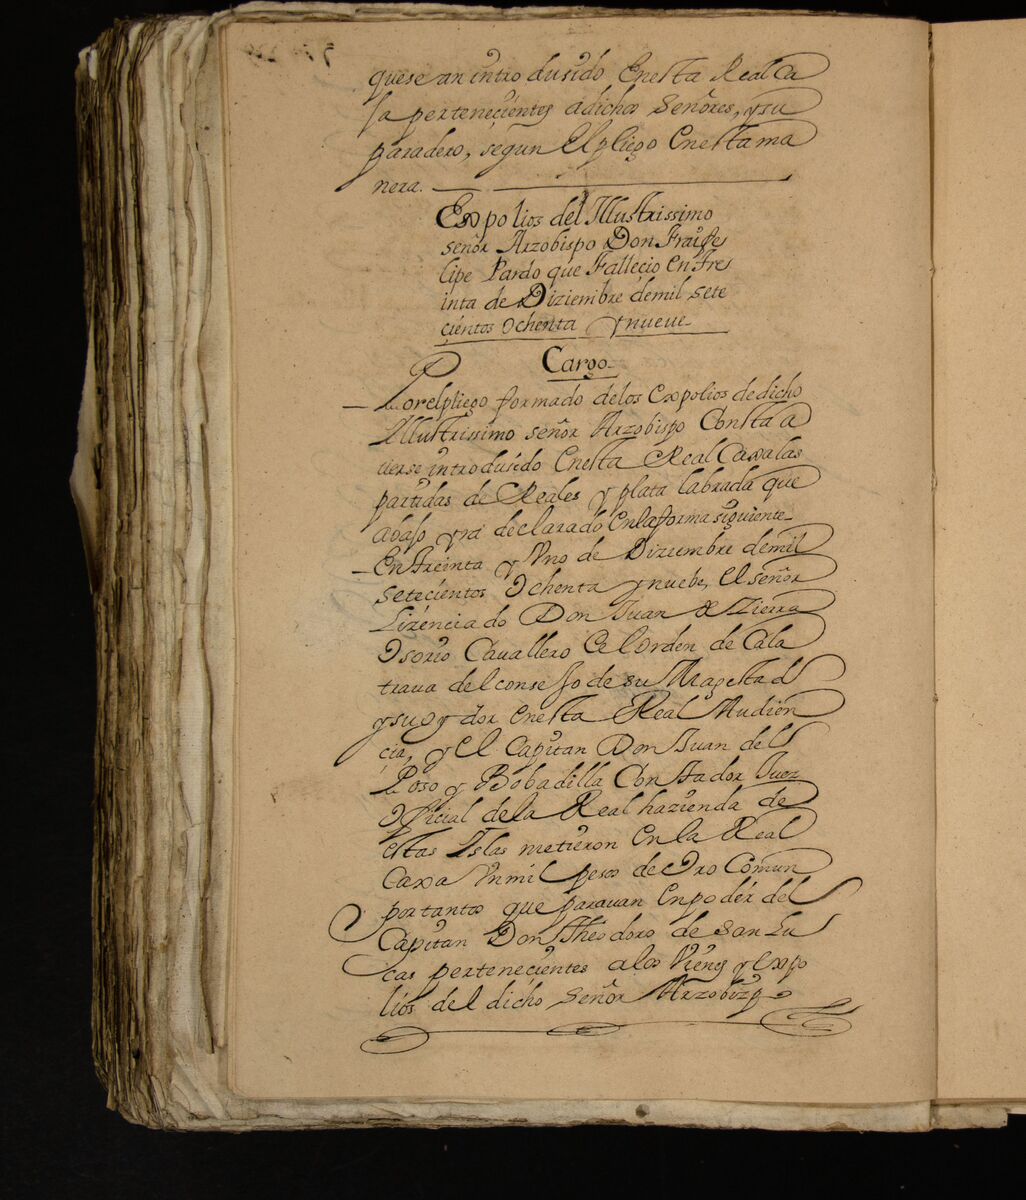 quese an introdusido Enesta Real Ca
sa pertenecientes adichos Señores, ysu
paradero, segun Elpliego Enesta ma
nera.
Expolios del Illustrissimo
señor Arzobispo Don Fraife
lipe Pardo que Fallecio en tre
inta de Diziembre demil sete
cientos Ochenta y nueve
Cargo
Porelpliego formado delos Expolios dedicho
Illustrissimo señor Arzobispo Consta a
uerse introdusido Enesta Real Caxa las
partidas de Reales y plata labrada que
abajo yra declarado Enlaforma siguiente
En treinta y Uno de Diziembre demil
setecientos Ochenta y nuebe, El señor
Lizenciado Don Juan de Zierra
Osorio Cavallero del Orden de Cala
traua del consejo de su Magestad
ysu Oydor Enesta Real Audien
cia, y El Capitan Don Juan del
Poso y Bobadilla Contador Juez
Oficial dela Real hazienda de
estas Islas metieron En la Real
Caxa Un mil pesos de Oro Comun
portantos que parauan Enpoder del
Capitan Don Theodoro de San Lu
cas pertenecientes alos Vienes y Expo
lios del dicho Señor Arzobizpo